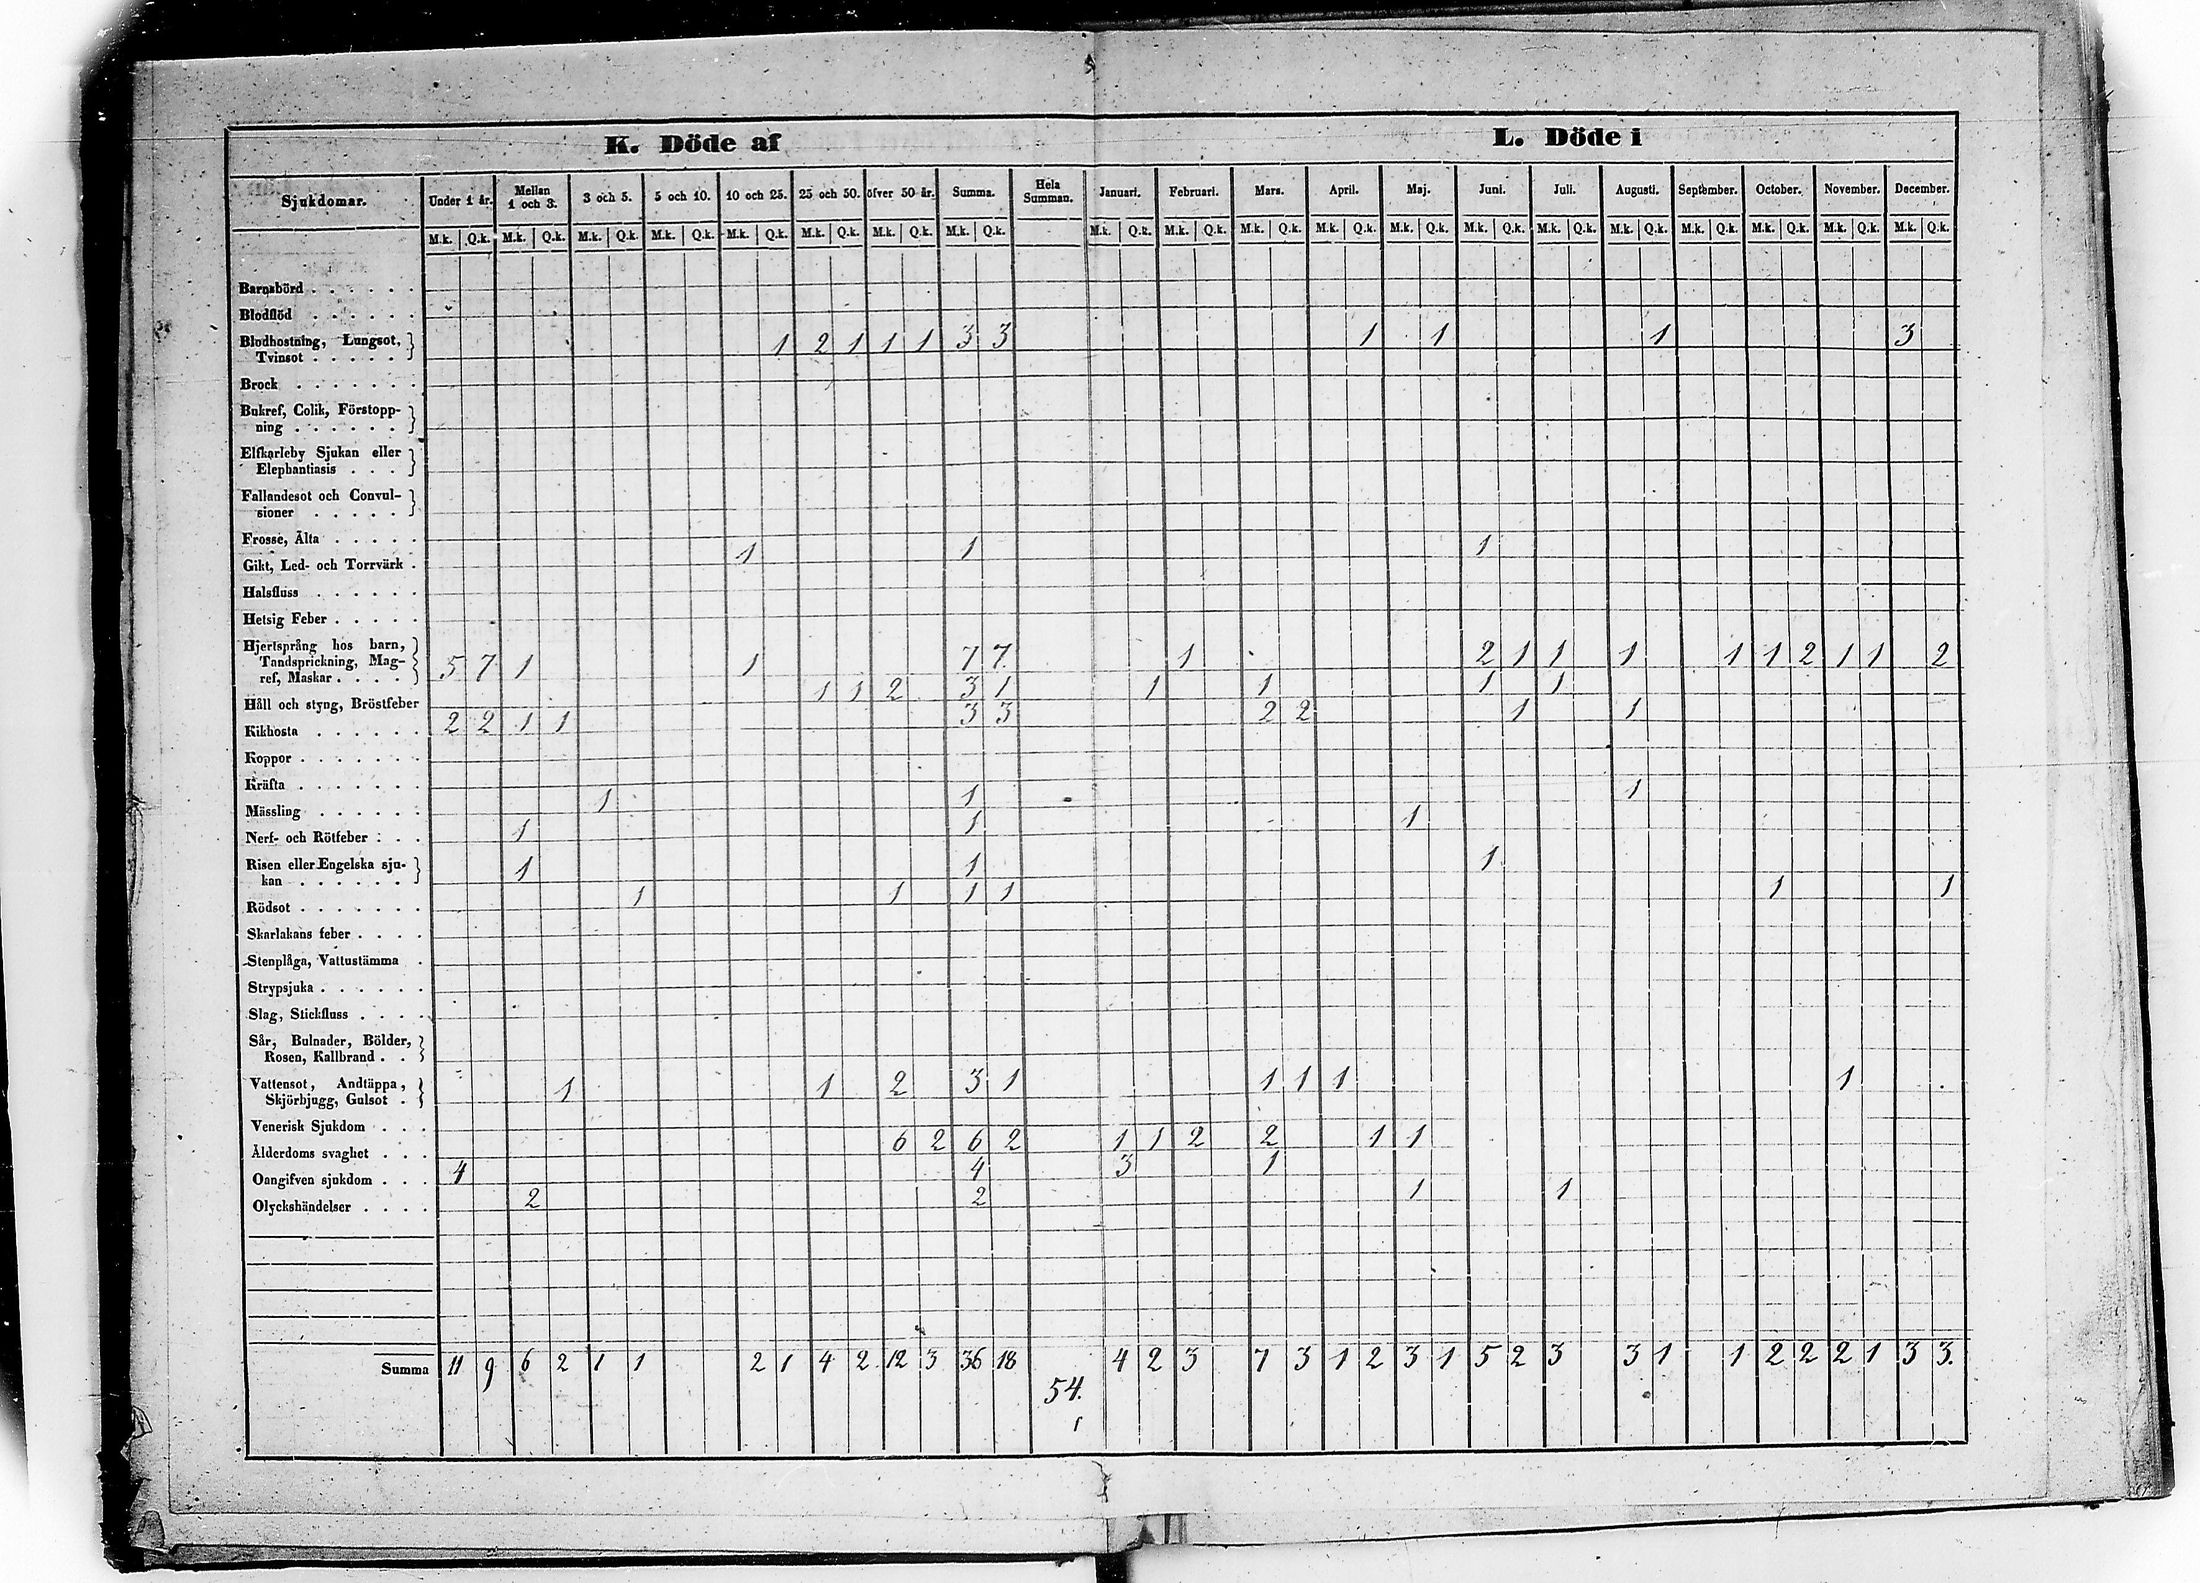 K. Döde af L. Döde i
Sjukdomar. Under 1 år. Mellan 1 och 3. 3 och 5. 5 och 10. 10 och 25. 25 och 50. öfver 50 år. Summa. Hela Summan. Januari. Februari. Mars. April. Maj. Juni. Juli. Augusti. September. October. November. December.
M.k. Q.k. M.k. Q.k. M.k. Q.k. M.k. Q.k. M.k. Q.k. M.k. Q.k. M.k. Q.k. M.k. Q.k. M.k. Q.k. M.k. Q.k. M.k. Q.k. M.k. Q.k. M.k. Q.k. M.k. Q.k. M.k. Q.k. M.k. Q.k. M.k. Q.k. M.k. Q.k. M.k. Q.k. M.k. Q.k.
Barnsbörd . . . . . .
Blodflöd . . . . . .
Blodhostning, Lungsot,
Tvinsot . . . . . 1 2 1 1 1 3 3 1 1 1 3
Brock . . . . . . .
Bukref, Colik, Förstopp-
ning . . . . . .
Elfkarleby Sjukan eller
Elephantiasis . . .
Fallandesot och Convul-
sioner . . . . .
Frosse, Älta . . . . .
1 1 1
Gikt, Led- och Torrvärk .
Halsfluss . . . . . .
Hetsig Feber . . . . .
Hjertsprång hos barn,
Tandsprickning, Mag- 5 7 1 1 7 7 1 2 1 1 1 1 1 2 1 1 2
ref, Maskar . . . .
1 1 2 3 1 1 1 1 1
Håll och styng, Bröstfeber
2 2 1 1 3 3 2 2 1 1
Kikhosta . . . . . .
Koppor . . . . . . .
Kräfta . . . . . . .
1 1 1
Mässling . . . . . .
1 1 1
Nerf- och Rötfeber . . .
Risen eller Engelska sju- 1 1 1
kan . . . . . .
1 1 1 1 1 1
Rödsot . . . . . . .
Skarlakans feber . . . .
Stenplåga, Vattustämma .
Strypsjuka . . . . . .
Slag, Stickfluss . . . .
Sår, Bulnader, Bölder,
Rosen, Kallbrand . .
Vattensot, Andtäppa, 1 1 2 3 1 1 1 1 1
Skjörbjugg, Gulsot .
Venerisk Sjukdom . . .
6 2 6 2 1 1 2 2 1 1
Ålderdoms svaghet . . .
4 4 3 1
Oangifven sjukdom . . .
2 2 1 1
Olyckshändelser . . . .
Summa 11 9 6 2 1 1 2 1 4 2 12 3 36 18 4 2 3 7 3 1 2 3 1 5 2 3 3 1 1 2 2 2 1 3 3.
54.